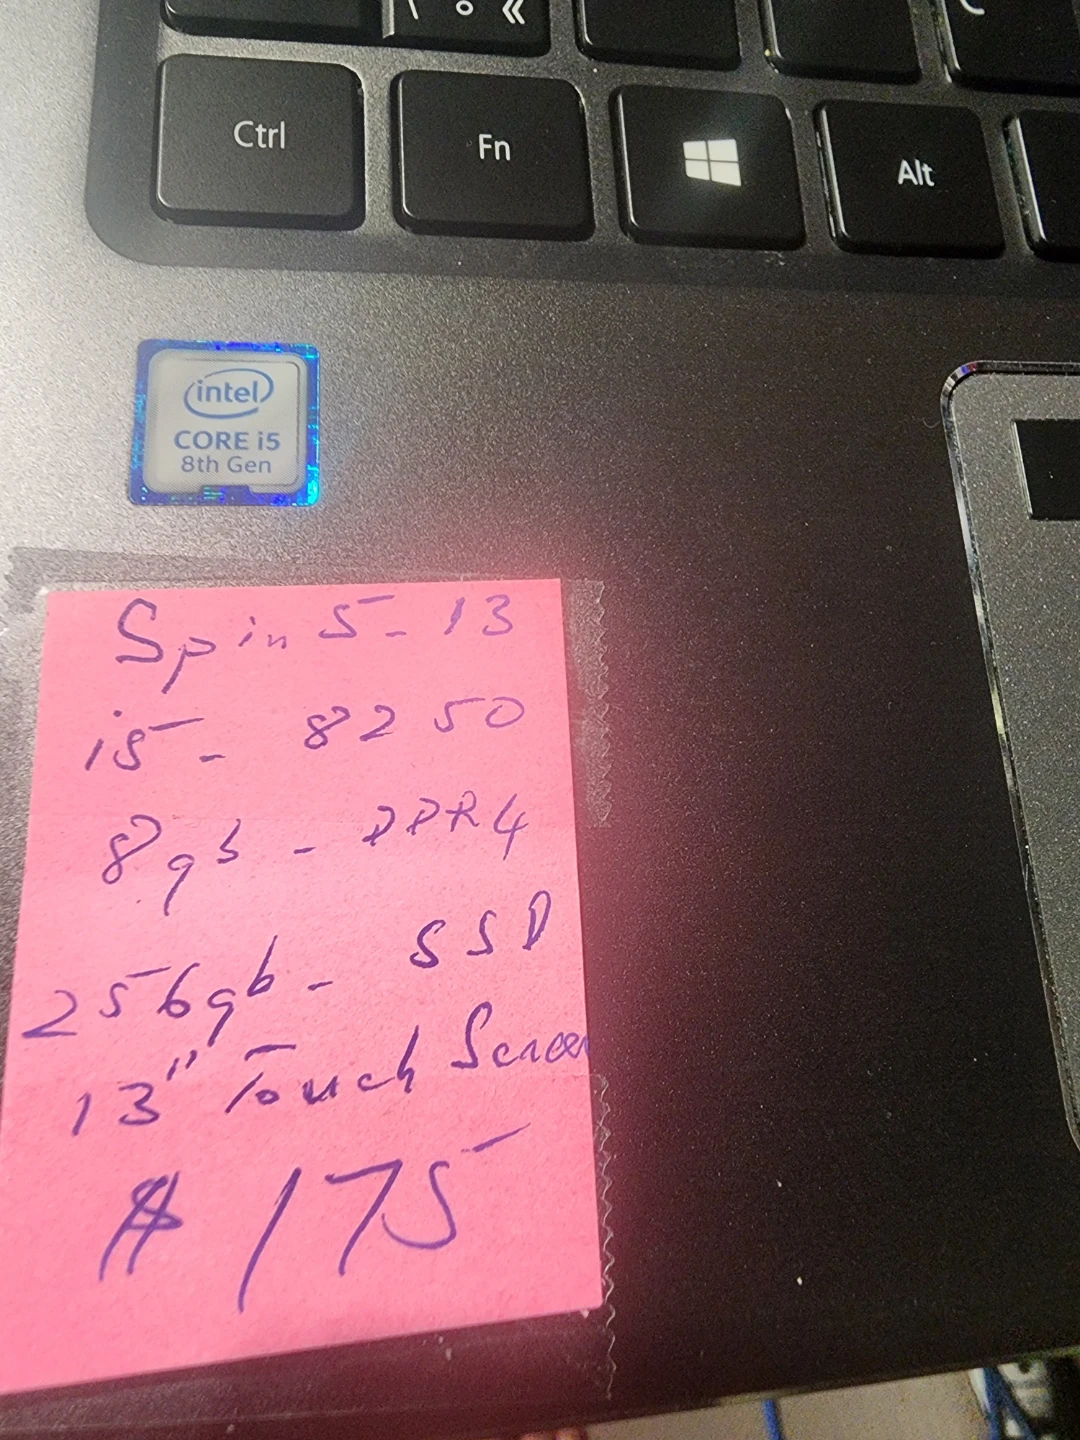 \ ° «
Ctrl Fn Alt
intel
CORE i5
8th Gen
Spin 5-13
i5 - 8250
8gb - DDR4
256gb - SSD
13" Touch Screen
$175